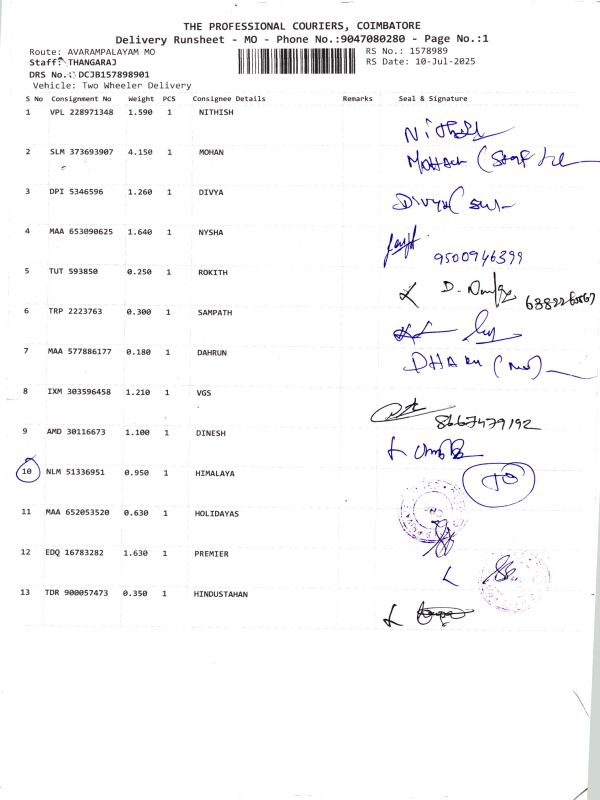 THE PROFESSIONAL COURIERS, COIMBATORE
Delivery Runsheet - MO - Phone No.:9047080280 - Page No.:1
Route: AVARAMPALAYAM MO
RS No.: 1578989
Staff: THANGARAJ
RS Date: 10-Jul-2025
DRS No.: DCJB157898901
Vehicle: Two Wheeler Delivery
S No Consignment No Weight PCS Consignee Details Remarks Seal & Signature
1 VPL 228971348 1.590 1 NITHISH
2 SLM 373693907 4.150 1 MOHAN
3 DPI 5346596 1.260 1 DIVYA
Divya
4 MAA 653090625 1.640 1 NYSHA
9500946399
5 TUT 593850 0.250 1 ROKITH
D.
6 TRP 2223763 0.300 1 SAMPATH
7 MAA 577886177 0.180 1 DAHRUN
8 IXM 303596458 1.210 1 VGS
8667479192
9 AMD 30116673 1.100 1 DINESH
10 NLM 51336951 0.950 1 HIMALAYA
11 MAA 652053520 0.630 1 HOLIDAYAS
12 EDQ 16783282 1.630 1 PREMIER
13 TDR 900057473 0.350 1 HINDUSTAHAN